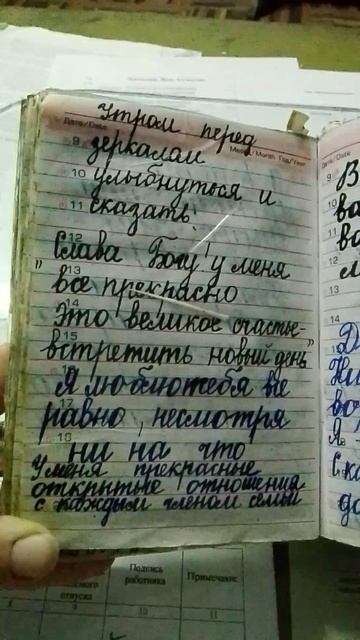 Утром перед
Дата/Date
Месяц/Month Год/Year
9 зеркалом
10 улыбнуться и
11 сказать:
12 Слава Богу! у меня
13 "все прекрасно
14 Это великое счастье-
15 встретить новый день"
16 Я люблю тебя все
17 равно, несмотря
18 ни на что
У меня прекрасные
открытые отношения
с каждым членом семьи
Дата/Date
9
10
11
12
13
14
15
отпуска
Подпись
работника
Примечание
9
10
11